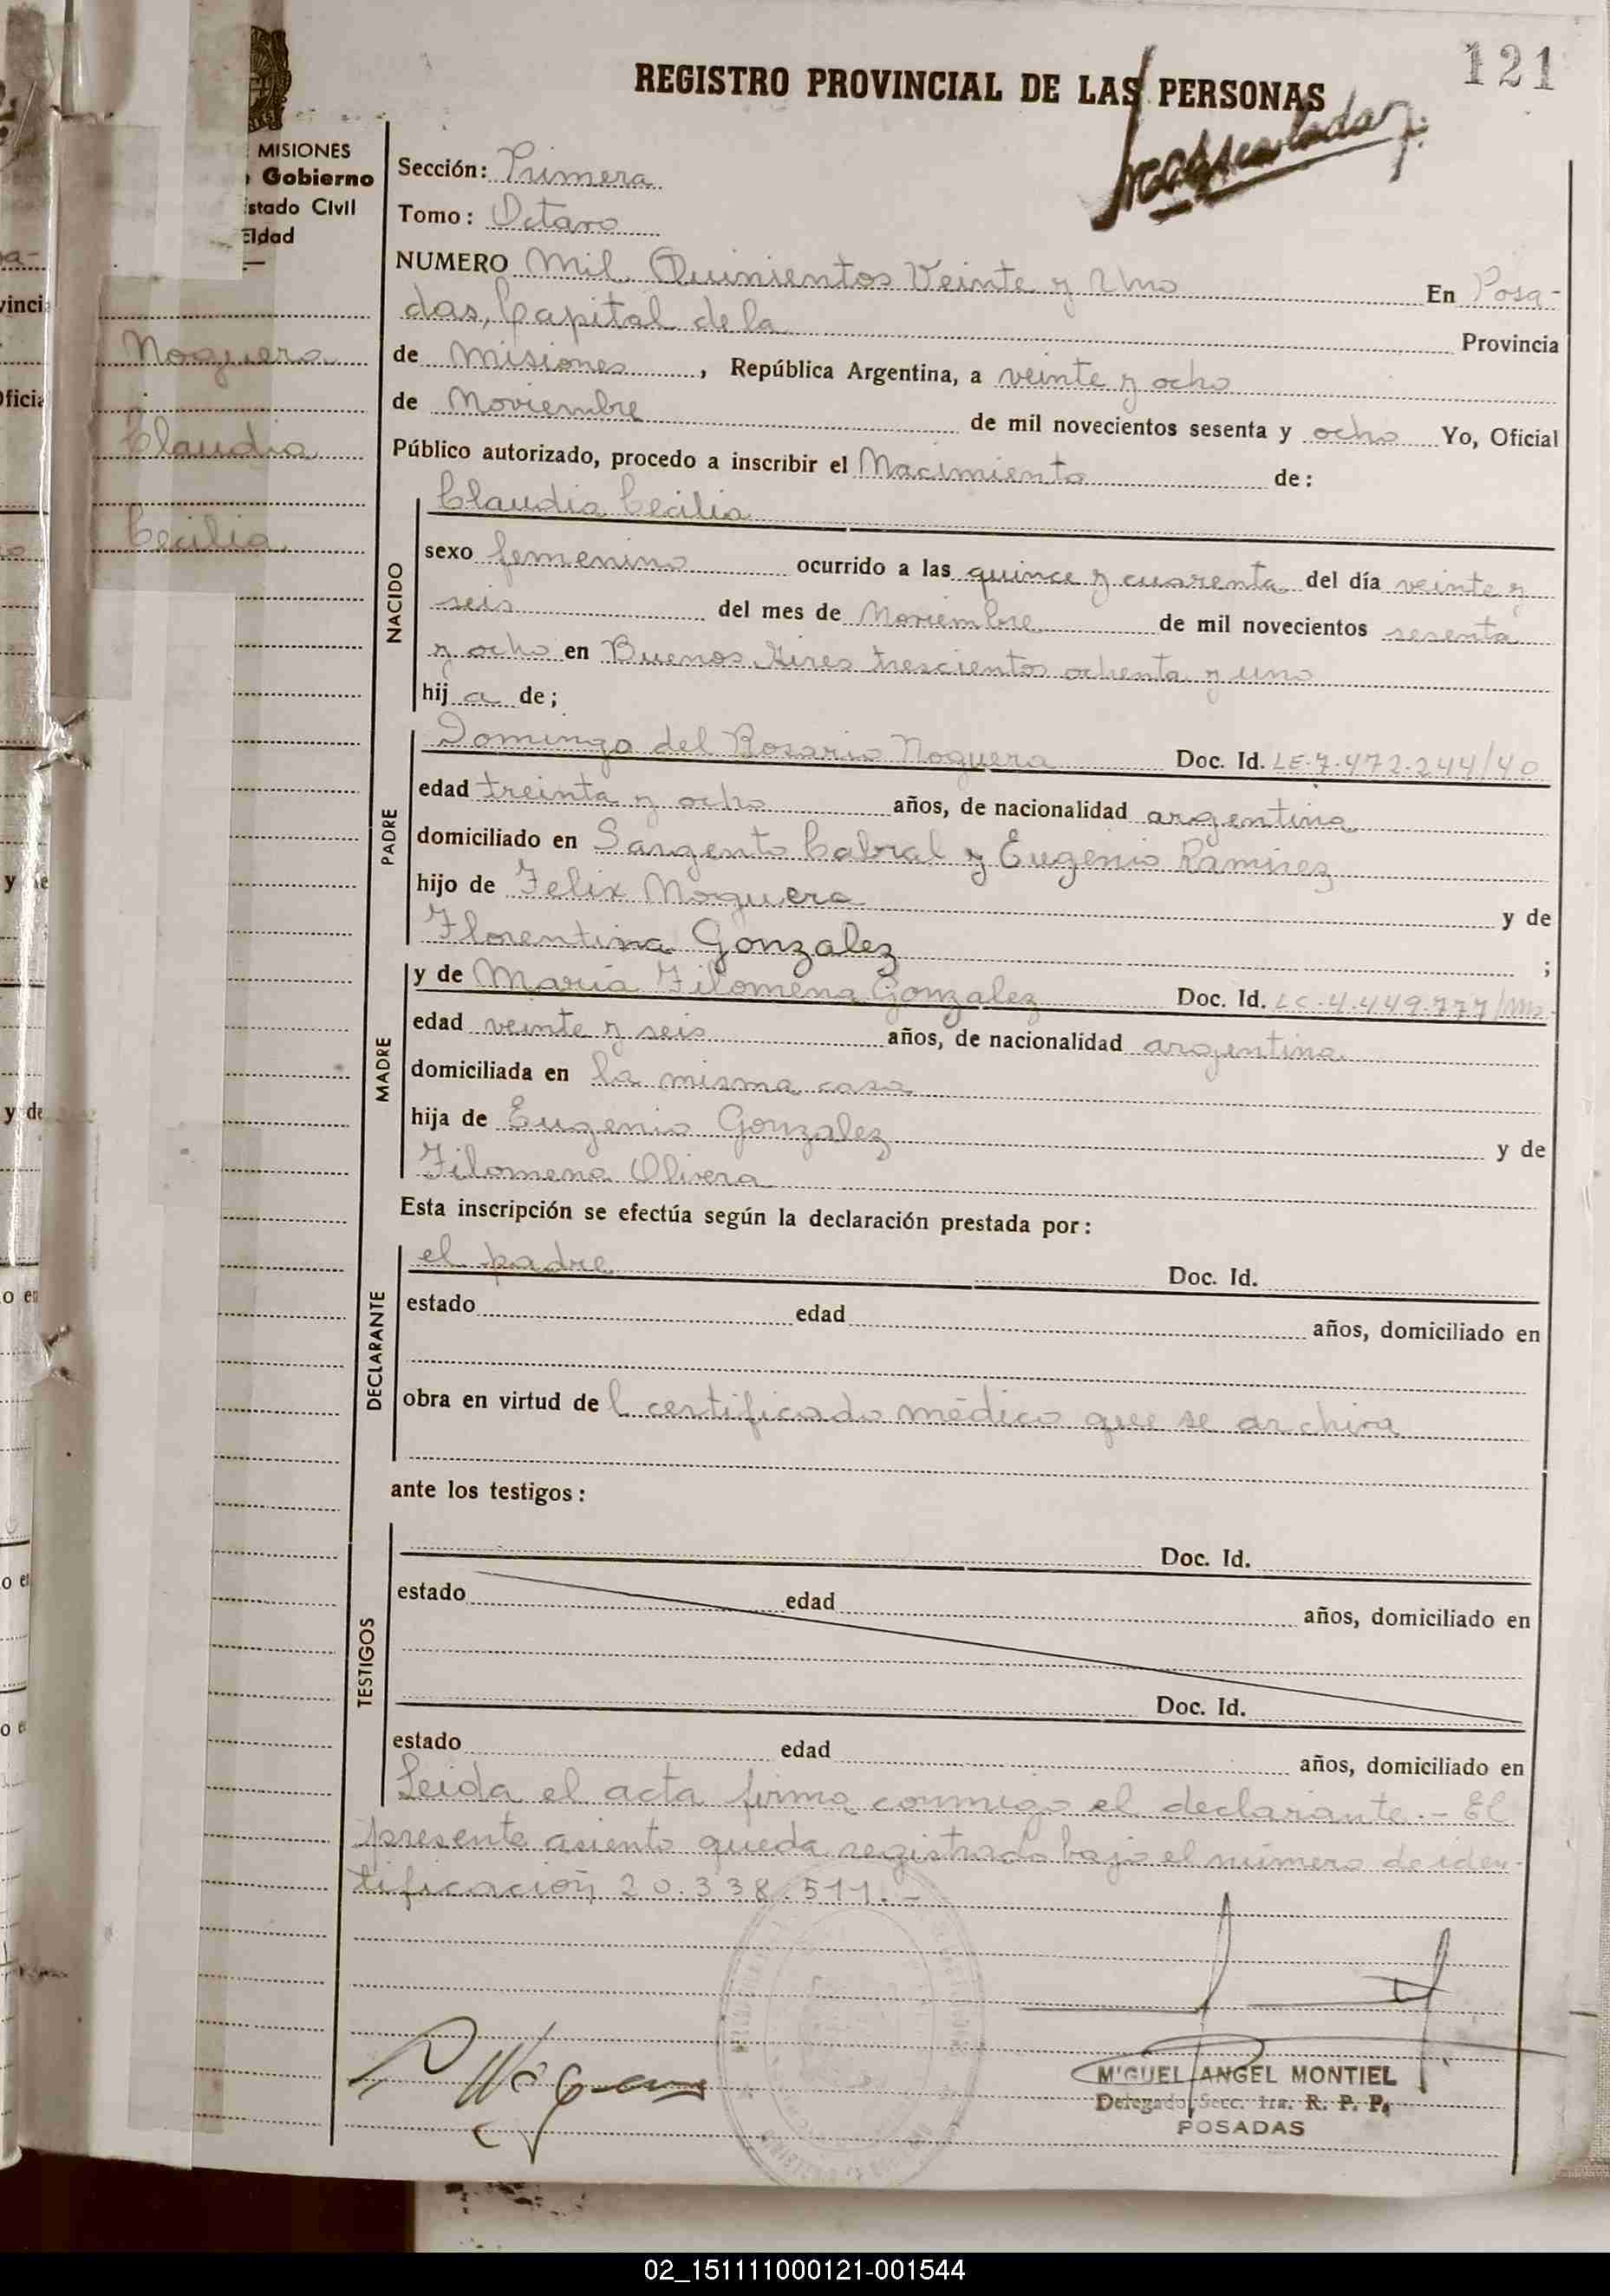 121
REGISTRO PROVINCIAL DE LAS PERSONAS
MISIONES
Gobierno
stado Civil
Sección: Primera
Tomo: Octavo
NUMERO Mil Quinientos Veinte y Uno En Posa-
das, Capital de la Provincia
de Misiones, República Argentina, a veinte y ocho
de Noviembre de mil novecientos sesenta y ocho Yo, Oficial
Público autorizado, procedo a inscribir el Nacimiento de:
Noguera
Claudia
Cecilia
NACIDO
Claudia Cecilia
sexo femenino ocurrido a las quince y cuarenta del día veinte y
seis del mes de Noviembre de mil novecientos sesenta
y ocho en Buenos Aires trescientos ochenta y uno
hija de;
PADRE
Domingo del Rosario Noguera Doc. Id. LE.7.472.244/40
edad treinta y ocho años, de nacionalidad argentina
domiciliado en Sargento Cabral y Eugenio Ramirez
hijo de Felix Noguera y de
Florentina Gonzalez ;
MADRE
y de Maria Filomena Gonzalez Doc. Id. LC.4.449.777/
edad veinte y seis años, de nacionalidad argentina
domiciliada en la misma casa
hija de Eugenio Gonzalez y de
Filomena Olivera
Esta inscripción se efectúa según la declaración prestada por:
DECLARANTE
el padre Doc. Id.
estado edad años, domiciliado en
obra en virtud de l certificado médico que se archiva
ante los testigos:
TESTIGOS
Doc. Id.
estado edad años, domiciliado en
Doc. Id.
estado edad años, domiciliado en
Leida el acta firma conmigo el declarante.- El
presente asiento queda registrado bajo el número de iden-
tificación 20.338.511.-
MIGUEL ANGEL MONTIEL
Delegado Secc. 1ra. R. P. P.
POSADAS
02_151111000121-001544